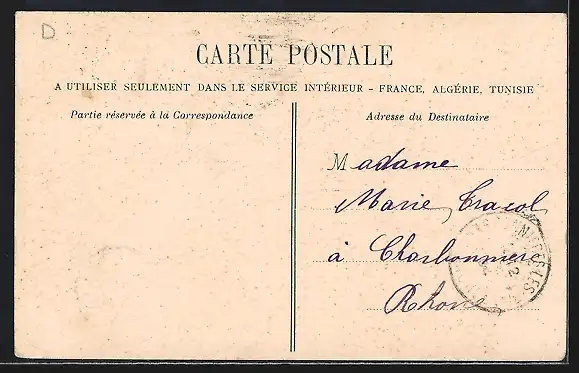 D
CARTE POSTALE
A UTILISER SEULEMENT DANS LE SERVICE INTÉRIEUR – FRANCE, ALGÉRIE, TUNISIE
Partie réservée à la Correspondance
Adresse du Destinataire
Madame
Marie Tracol
à Charbonnière
Rhône